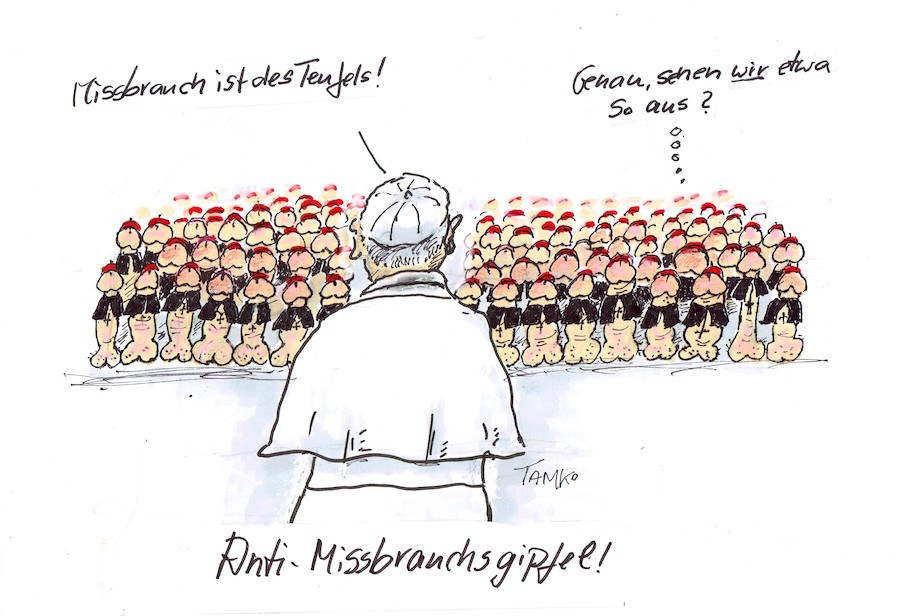 Missbrauch ist des Teufels!
Genau, sehen wir etwa
so aus?
TAMKO
Anti-Missbrauchsgipfel!